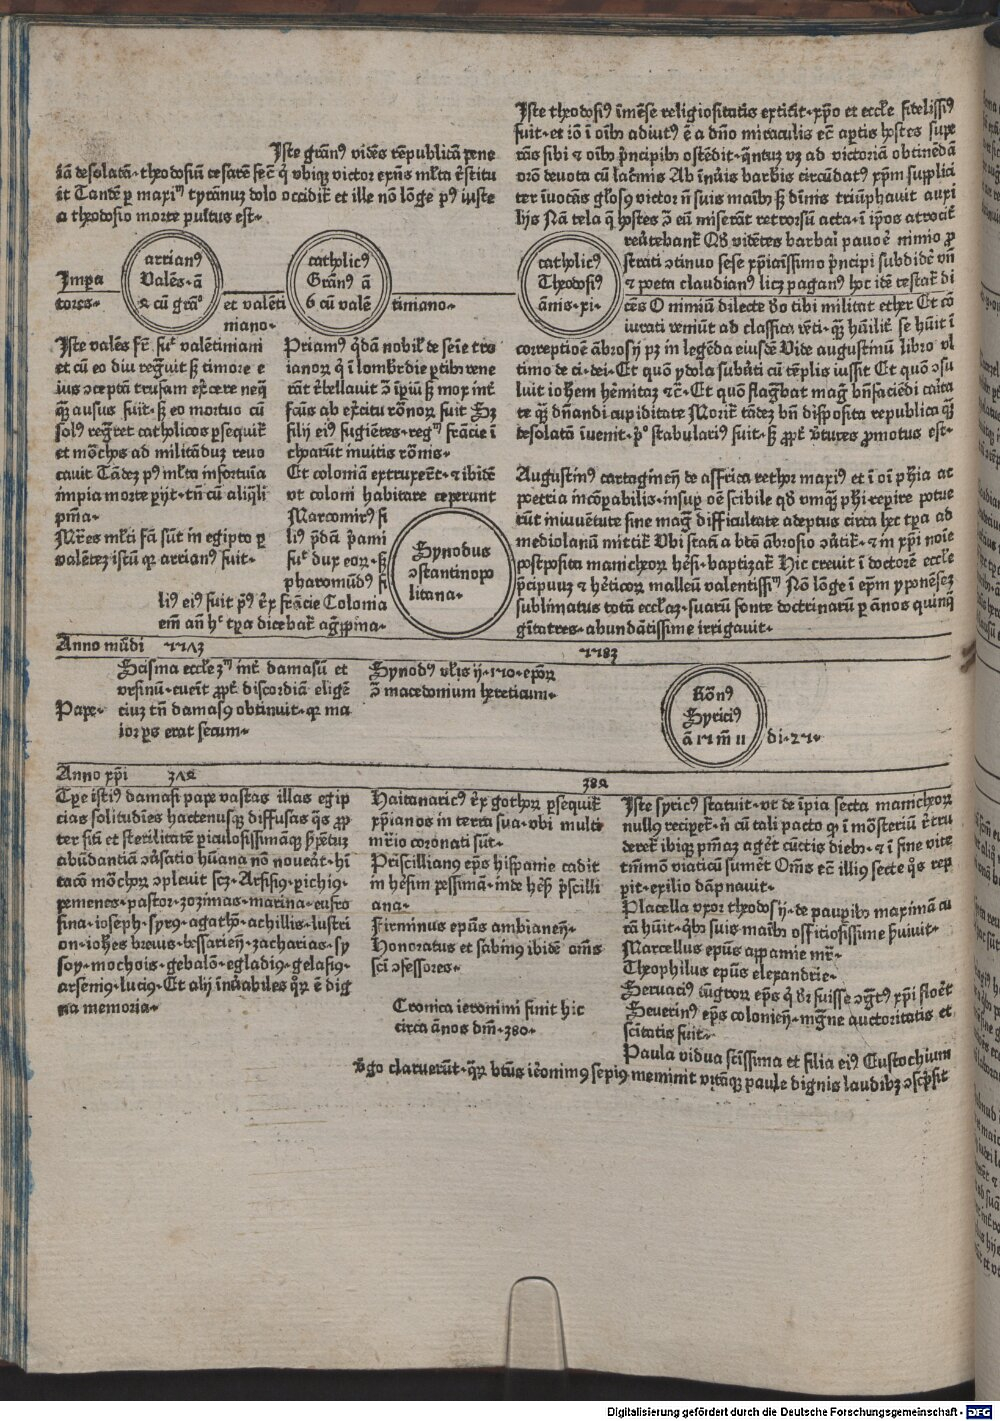 Iste grãn⁹ vidẽs rẽpublicã pene
iã desolatã·theodosiũ cesarẽ fec̃ q̇ vbiqʒ victor exñs ml̃ta r̃stitu
it Tandẽ ꝑ maxiᵐ tyrãnuʒ dolo occidit̃ et ille nõ lõge p⁹ iuste
a theodosio morte pultus est·
Iste theodosi⁹ ĩmẽse religiositatis extitit·xp̃o et eccl̃e fidelissi⁹
fuit·et iõ ĩ oĩbʒ adiut⁹ ẽ a dño miraculis ec̃ aꝑtis hostes supe
rãs sibi ⁊ oĩbʒ pñcipibʒ ostẽdit·q̃ntuʒ vʒ ad victoriã obtinẽdã
orõ deuota cũ lac̃mis Ab ĩnũis barbis circũdat⁹ xp̃m supplici
ter ĩuocãs gl̃os⁹ victor ñ suis maĩbʒ sʒ dĩnis triũphauit auxi
lijs Nã tela q̃ hostes ↄ̃ eũ miserãt retrorsũ acta·ĩ ip̃os atrocit̃
reũtebant̃ Qđ vidẽtes barbari pauoẽ nimio ꝓ
strati ↄtinuo sese xp̃ianissimo pñcipi subdidẽ vñ
⁊ poeta claudian⁹ licʒ pagan⁹ hoc idẽ testat̃ di
cẽs O nimiũ dilecte đo tibi militat ether Et cõ
iurati veniũt ad classica vẽti·q̃ʒ hũilit̃ se hũit ĩ
correptioẽ ãbrosij pʒ in legẽda eiusdẽ Vide augustinũ libro vl
timo de ci·dei·Et quõ ydola subũti cũ tẽplis iussit Et quõ ↄsu
luit iohem hẽmitaʒ ⁊c̃·Et quõ flag̃bat mag̃ bñfaciẽdi caita
te q̃ʒ dñandi cupiditate Morit̃ tãdeʒ bñ disposita republica q̃ʒ
desolatã ĩuenit·pº stabulari⁹ fuit·sʒ ꝓpt̃ v̾tutes ꝓmotus est·
arrian⁹
Valẽs·ã
2 cũ grãº
catholic⁹
Grãn⁹ ã
6 cũ valẽ
catholic⁹
Theodosi⁹
ãnis·xi·
Impa
tores·
et valẽti
niano·
tiniano·
Iste valẽs fr̃ fuᵗ valẽtiniani
et cũ eo diu regñuit sʒ timore e
ius ↄceptã trufam exc̾ere neq̃
q̃ʒ ausus fuit·sʒ eo mortuo cũ
sol⁹ regñret catholicos ꝑsequit̃
et mõchos ad militãduʒ reuo
cauit Tãdeʒ p⁹ ml̃ta infortuĩa
ĩmpia morte pijt·tñ cũ aliq̃li
pñia·
Mr̃es ml̃ti fc̃i sũt in egipto ꝑ
valẽteʒ istũ qʒ arrian⁹ fuit·
Priam⁹ q̃dã nobil̃ de seĩe tro
ianoꝝ q̇ ĩ lombr̃die ꝑtibʒ vene
rãt r̃bellauit ↄ̃ ĩꝑiũ sʒ moʒ int̃
fc̃us ab exc̾itu rõnoꝝ fuit Sʒ
filij ei⁹ fugiẽtes·regᵐ frãcie ĩ
choarũt inuitis rõnis·
Et coloniã extruxer̃t·⁊ ibidẽ
vt coloni habitare ceperunt
Marcomir⁹ fi
li⁹ p̃dcĩ p̃ami
fuᵗ dux eoꝝ·sʒ
pharomũd⁹ fi
li⁹ ei⁹ fuit p⁹ r̃x frãcie Colonia
em̃ añ hᵉ tp̃a dicebat̃ ag̃ppina·
Synodus
ↄstantinopo
litana·
Augustin⁹ cartaginẽñ de affrica rethor maxi⁹ et ĩ oĩ phĩa ac
poetria incõꝑabilis·insuꝑ oẽ scibile qđ vmqʒ phĩ reꝑire potue
rũt ĩn iuuẽtute sine mag̃ difficultate adeptus circa hec tp̃a ad
mediolanũ mittit̃ Vbi statĩ a bt̃o ãbrosio ↄ̃ũtit̃·⁊ in xp̃i noĩe
postposita manicheoꝝ hẽsi·baptizat̃ Hic creuit ĩ doctorẽ eccl̃e
p̃cipuuʒ ⁊ hẽticoꝝ malleũ valentissiᵐ Nõ lõge ĩ ep̃m yponẽsez
sublimatus totã eccl̃aʒ·suarũ fonte doctrinarũ ꝑ ãnos quinq̃
gĩtatres·abundãtissime irrigauit·
Anno mũdi
Scisma eccl̃e ʒᵐ int̃ damasũ et
vrsinũ·eueĩt ꝓpt̃ discordiã eligẽ
Pape· ciuʒ tñ damas⁹ obtinuit·qʒ ma
ior ꝑs erat secum·
Synod⁹ vl̃is ij·150·ep̃oꝝ
ↄ̃ macedonium hereticum·
Rõn⁹
Syrici⁹
ã 15 m̃ 11
di·25·
Anno xp̃i
Tp̃e isti⁹ damasi pape vastas illas egip
cias solitudĩes hactenusqʒ diffusas q̃s ꝓp
ter sitĩ et sterilitatẽ ꝑiculosissimãqʒ p̃p̃etuʒ
abũdantiã ↄũsatio hũana nõ nouerat·hĩ
tacõ mõchoꝝ ↄpleuit scʒ·Arsisi⁹·pichi⁹·
pemenes·pastor·zozimas·marina·eufro
sina·ioseph·syr⁹·agathõ·achillis·lustri
on·iohẽs breuis·bessarieñ·zacharias·sy
soy·mochois·gebalõ·egladi⁹·gelasi⁹·
arseni⁹·luci⁹·Et alij ĩnũabiles qͦꝝ ẽ dig
na memoria·
Haitanaric⁹ r̃x gothoꝝ ꝑsequit̃
xp̃ianos in terra sua·vbi multi
mr̃io coronati sũt·
Priscillian⁹ ep̃us hispanie cadit
in hẽsim pessimã·inde hẽs̃ p̃scilli
ana·
Firminus ep̃us ambianeñ·
Honoratus et sabin⁹ ibidẽ om̃s
sc̃i ↄfessores·
Cronica ieronimi finit hic
circa ãnos dm̃·380·
Iste syric⁹ statuit·vt de ĩpia secta manicheoꝝ
null⁹ reciꝑet̃·ñ cũ tali pacto qʒ ĩ mõsteriũ r̃tru
deret̃ ibiqʒ pñiaʒ ag̃et cũctis diebʒ·⁊ ĩ fine vite
tm̃mõ viaticũ sumẽt Om̃s ec̃ illi⁹ secte q̃s rep
pit·exilio dãpnauit·
Placella vxor theodosij·de paupibʒ maximã cu
rã hũit·q̃bʒ suis maĩbʒ officiosissime s̃uiuit·
Marcellus ep̃us appamie mr̃·
Theophilus ep̃us elexandrie·
Seruaci⁹ tũgroꝝ ep̃s q̇ đr fuisse ↄg̃t⁹ xp̃i floret̃
Seuerin⁹ ep̃s colonieñ·mg̃ne auctoritatis et
sc̃itatis fuit·
Paula vidua sc̃issima et filia ei⁹ Eustochium
v̾go claruerũt·qͣꝝ bt̃us ieronim⁹ sepi⁹ meminit vitãqʒ paule dignis laudibʒ ↄsc̾psit
Digitalisierung gefördert durch die Deutsche Forschungsgemeinschaft - DFG